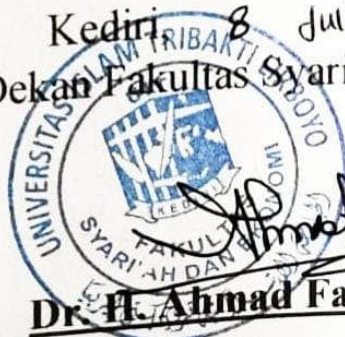 Kediri, 8 Jul
Dekan Fakultas Syari
UNIVERSITAS ISLAM TRIBAKTI LIRBOYO
KEDIRI
FAKULTAS
SYARI'AH DAN EKONOMI
Dr. H. Ahmad Fa